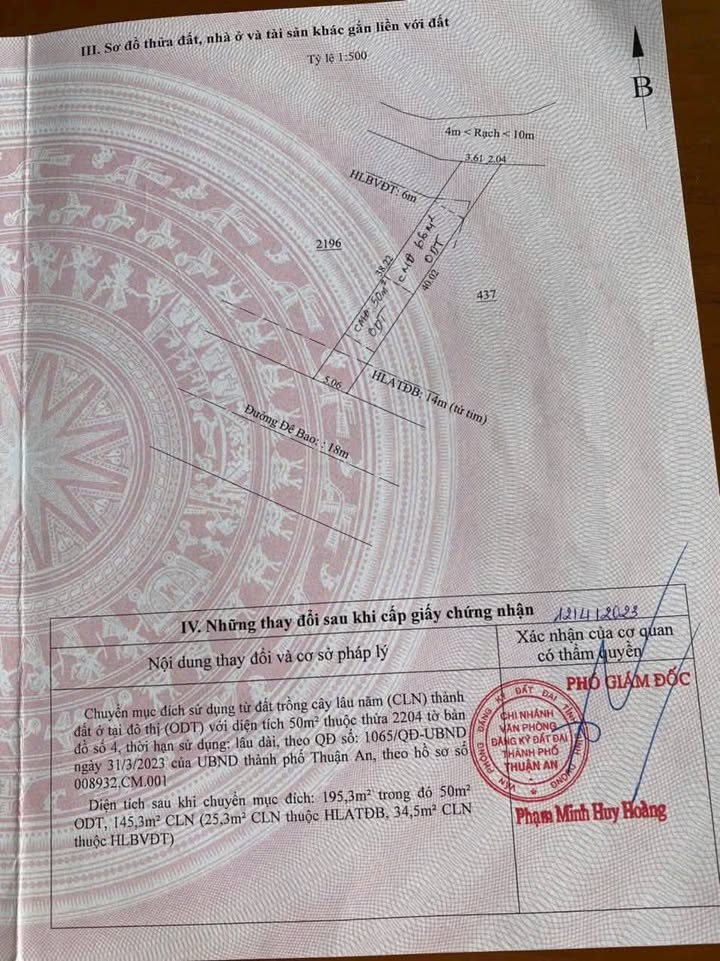 III. Sơ đồ thửa đất, nhà ở và tài sản khác gắn liền với đất
Tỷ lệ 1:500
B
4m < Rạch < 10m
3.61 2.04
HLBVĐT: 6m
2196
38.22
CMĐ 66m²
ODT
CMĐ 50m²
ODT
40.02
437
5.06
HLATĐB: 14m (từ tim)
Đường Đê Bao: : 18m
IV. Những thay đổi sau khi cấp giấy chứng nhận
12/4/2023
Nội dung thay đổi và cơ sở pháp lý
Xác nhận của cơ quan
có thẩm quyền
Chuyển mục đích sử dụng từ đất trồng cây lâu năm (CLN) thành
đất ở tại đô thị (ODT) với diện tích 50m² thuộc thửa 2204 tờ bản
đồ số 4, thời hạn sử dụng: lâu dài, theo QĐ số: 1065/QĐ-UBND
ngày 31/3/2023 của UBND thành phố Thuận An, theo hồ sơ số
008932.CM.001
Diện tích sau khi chuyển mục đích: 195,3m² trong đó 50m²
ODT, 145,3m² CLN (25,3m² CLN thuộc HLATĐB, 34,5m² CLN
thuộc HLBVĐT)
PHÓ GIÁM ĐỐC
VĂN PHÒNG ĐĂNG KÝ ĐẤT ĐAI TỈNH BÌNH DƯƠNG
CHI NHÁNH
VĂN PHÒNG
ĐĂNG KÝ ĐẤT ĐAI
THÀNH PHỐ
THUẬN AN
Phạm Minh Huy Hoàng